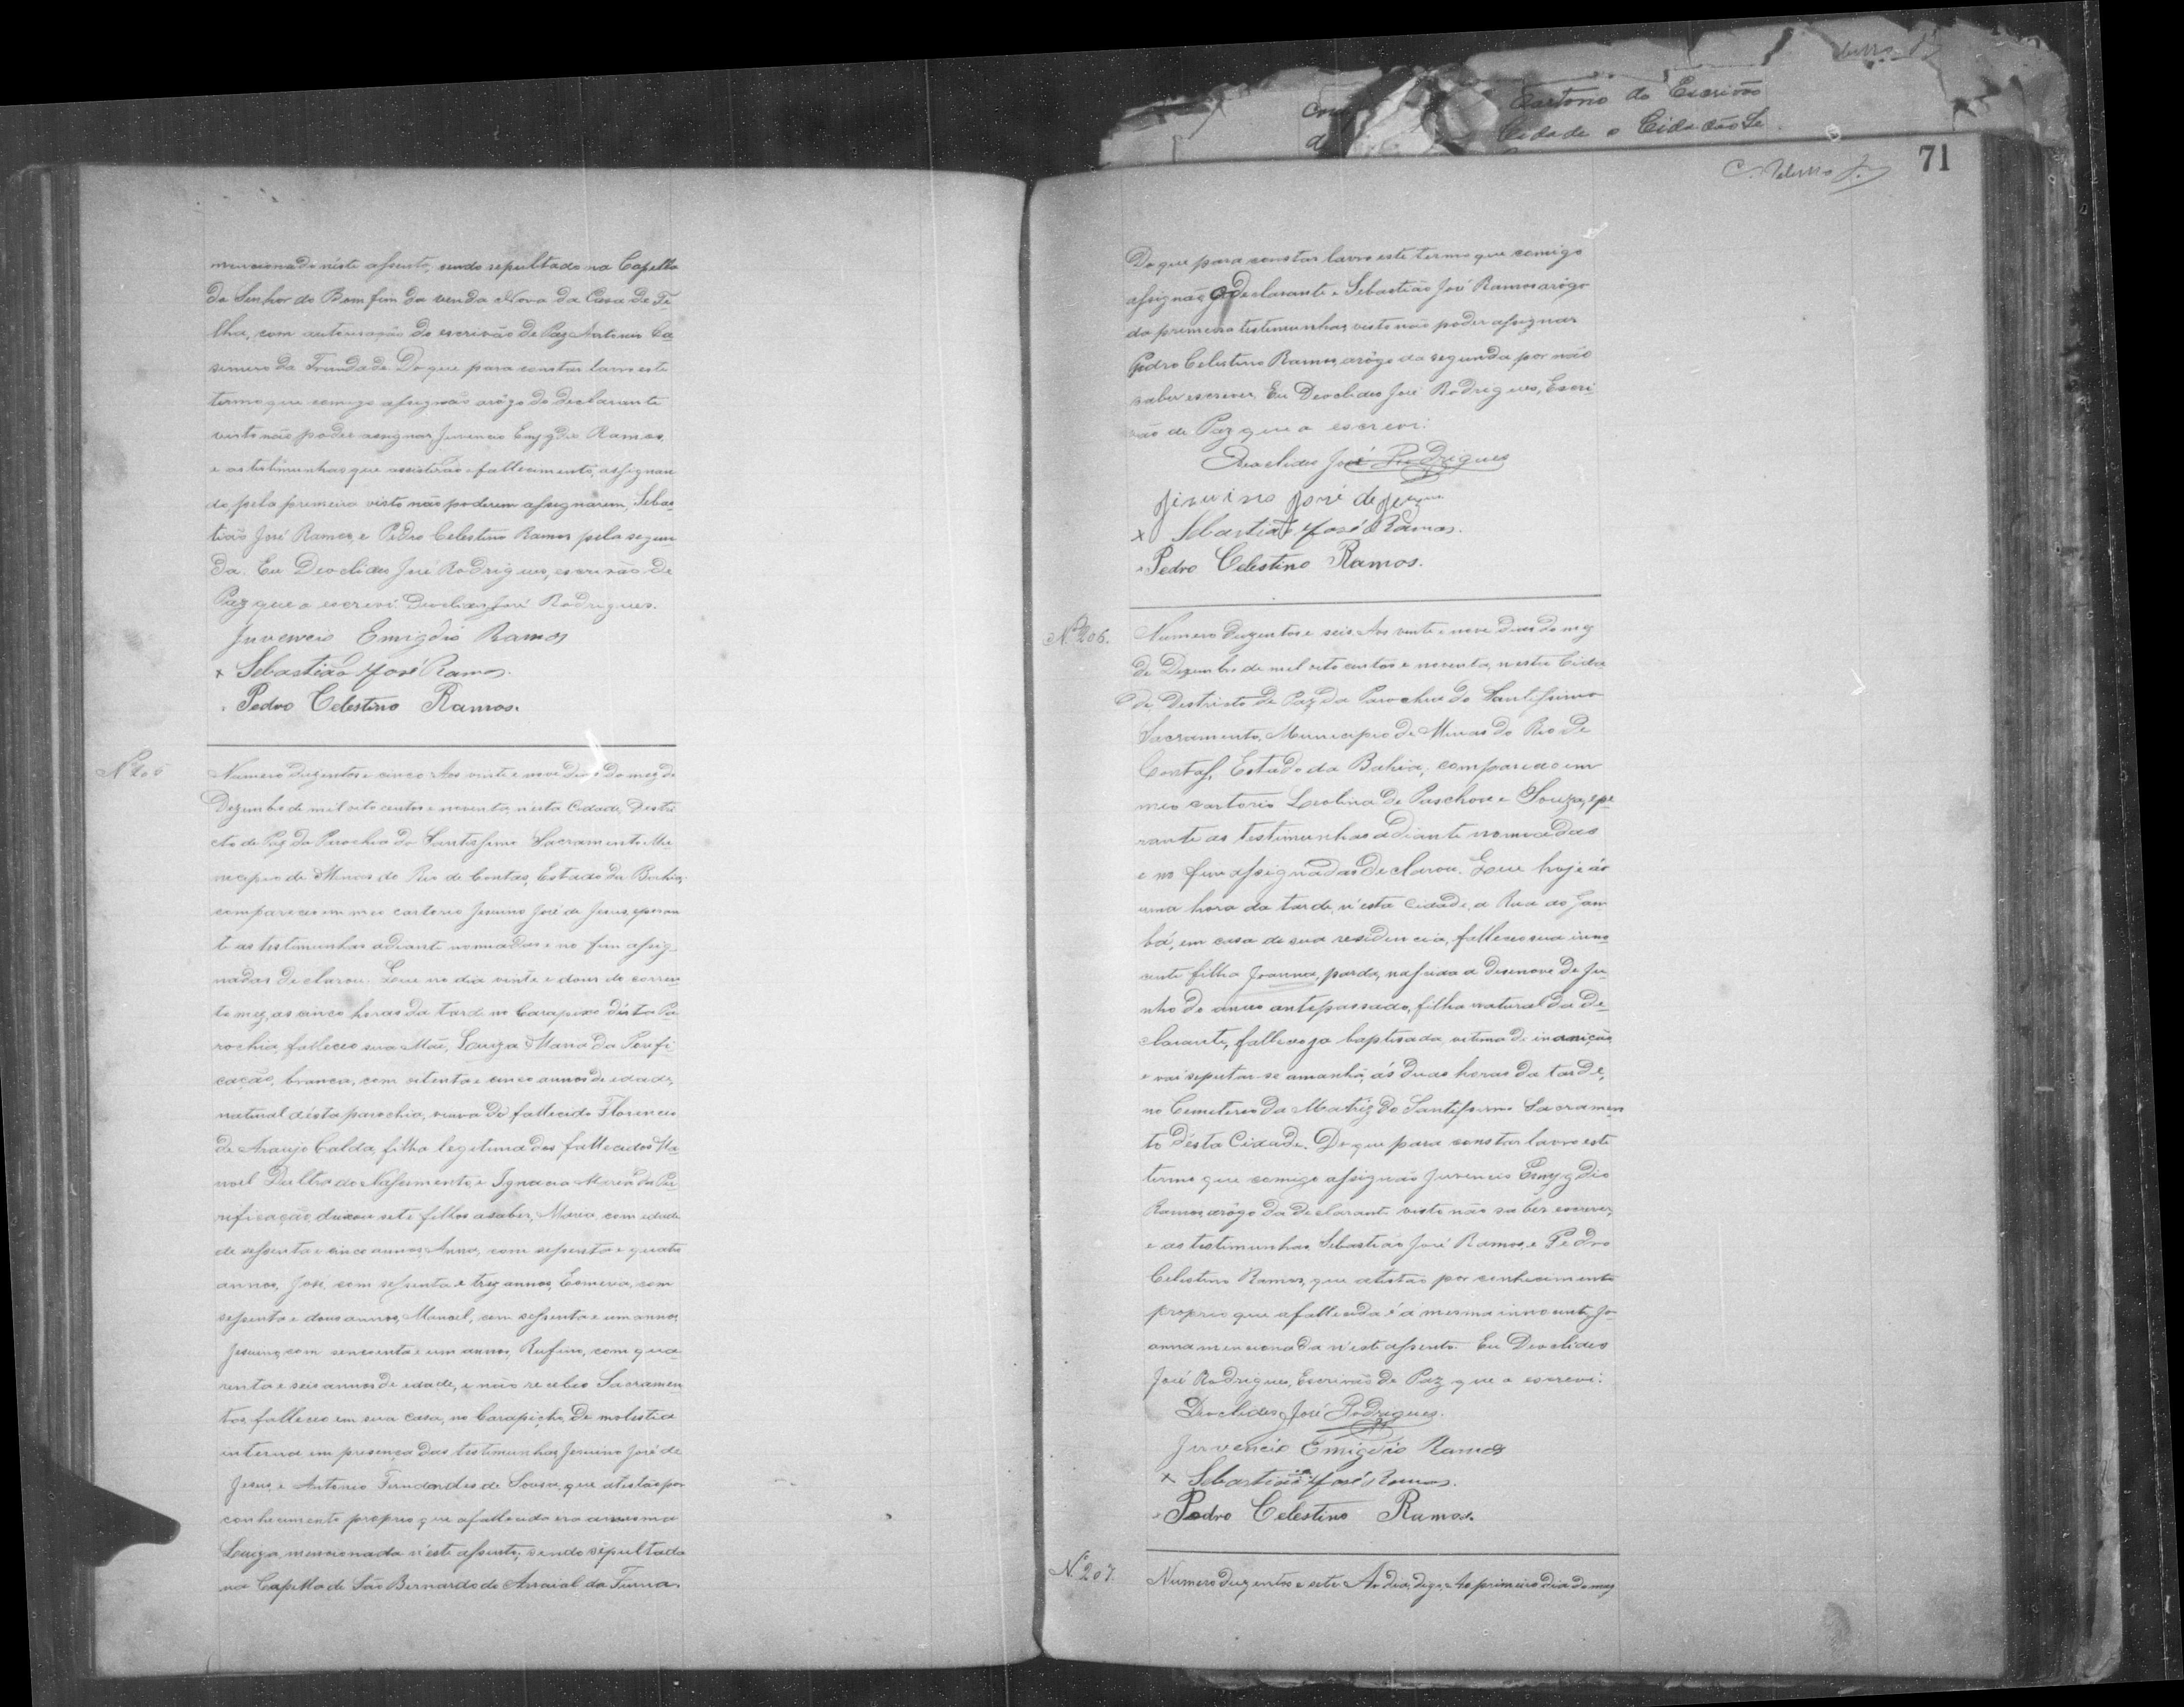 mencionado néste assento, sendo sepultado na Capella
do Senhor do Bom fim da venda Nova da Casa de Te-
lha, com autorisação do escrivão de Paz Antonio Ca-
semiro da Trindade. Do que para constar lavro este
termo que comigo assignão arôgo do declarante
visto não poder assignar Juvencio Emygdio Ramos,
e as testimunhas que assistirão o fallecimento, assignan
do pela primeira visto não poderem assignarem, Sebas-
tião José Ramos, e Pedro Celestino Ramos pela segun-
da. Eu Deoclides José Rodrigues, escrivão de
Paz que o escrevi. Deoclides José Rodrigues.
Juvencio Emigdio Ramos
x Sebastião José Ramos.
Pedro Celestino Ramos.
Nº 205
Numero duzentos e cinco. Aos vinte e nove dias do mez de
Dezembro de mil oito centos e noventa, n'esta Cidade, Destri-
cto de Paz da Parochia do Santissimo Sacramento Mu-
nicipio de Minas do Rio de Contas, Estado da Bahia,
compareceo em meo cartorio Jesuino José de Jesus, e peran
te as testimunhas adiante nomiadas e no fim assig-
nadas declarou. Que no dia vinte e dous do corren-
te mez, as cinco horas da tarde no Carapixo désta Pa-
rochia, falleceo sua Mãi, Luiza Maria da Purifi-
cação, branca, com oitenta e cinco annos de edade,
natural désta parochia, viuva do fallecido Florencio
de Araujo Calda, filha legitima dos fallecidos Ma-
noel Dultra do Nascimento, e Ignacia Maria da Pu-
rificação, deixou sete filhos asaber, Maria, com edade
de sessenta e cinco annos, Anna, com sessenta e quatro
annos, José, com sessenta e trez annos, com
sessenta e dous annos, Manoel, com sessenta e um annos,
Jesuino, com sencoenta e um annos, Rufino, com qua-
renta e seis annos de edade, e não recebeo Sacramen
tos, falleceo em sua casa, no Carapicho, de molestia
interna em presença das testimunhas Jesuino José de
Jesus, e Antonio Fernandes de Sousa, que atestão por
conhecimento proprio que a fallecida era a mesma
Luiza, mencionada n'este assento; sendo sepultada
na Capella de São Bernardo do Arraial da Furna.
Cartorio do Escrivão
Cidade o Cidadão
71
Do que para constar lavro este termo que comigo
assignão o declarante e Sebastião José Ramos arôgo
da primeira testimunha, visto não poder assignar
Pedro Celestino Ramos, arôgo da segunda por não
saber escrever. Eu Deoclides José Rodrigues, Escri-
vão de Paz que o escrevi.
Deoclides José Rodrigues
Jisuino José de Jezus
x Sebastião José Ramos.
Pedro Celestino Ramos.
Nº 206.
Numero duzentos e seis. Aos vinte e nove dias do mez
de Dezembro de mil oito centos e noventa, nesta Cida-
de, Destricto de Paz da Parochia do Santissimo
Sacramento, Municipio de Minas do Rio de
Contas, Estado da Bahia; compareceo em
meo cartorio Leolina de Paschoa e Souza, e pe-
rante as testimunhas adiante nomiadas
e no fim assignadas declarou. Que hoje ás
uma hora da tarde, n'esta Cidade, a Rua do Gam-
bá, em casa de sua residencia, falleceo sua inno-
cente filha Joanna, parda, nascida a desenove de Ju-
nho do anno antepassado, filha natural da de-
clarante, falleceo ja baptisada, vitima de inanição
e vai sepultar-se amanhã, ás duas horas da tarde,
no Cemeterio da Matriz do Santissimo Sacramen
to desta Cidade. Do que para constar lavro este
termo que comigo assignão Juvencio Emygdio
Ramos, arôgo da declarante visto não saber escrever,
e as testimunhas, Sebastião José Ramos, e Pedro
Celestino Ramos, que atestão por conhecimento
proprio que a fallecida é á mesma innocente, Jo-
anna mencionada n'este assento. Eu Deoclides
José Rodrigues, Escrivão de Paz que o escrevi.
Deoclides José Rodrigues.
Juvencio Emigdio Ramos
x Sebastião José Ramos.
Pedro Celestino Ramos.
Nº 207.
Numero duzentos e sete. Ao dia, digo, Ao primeiro dia do mez